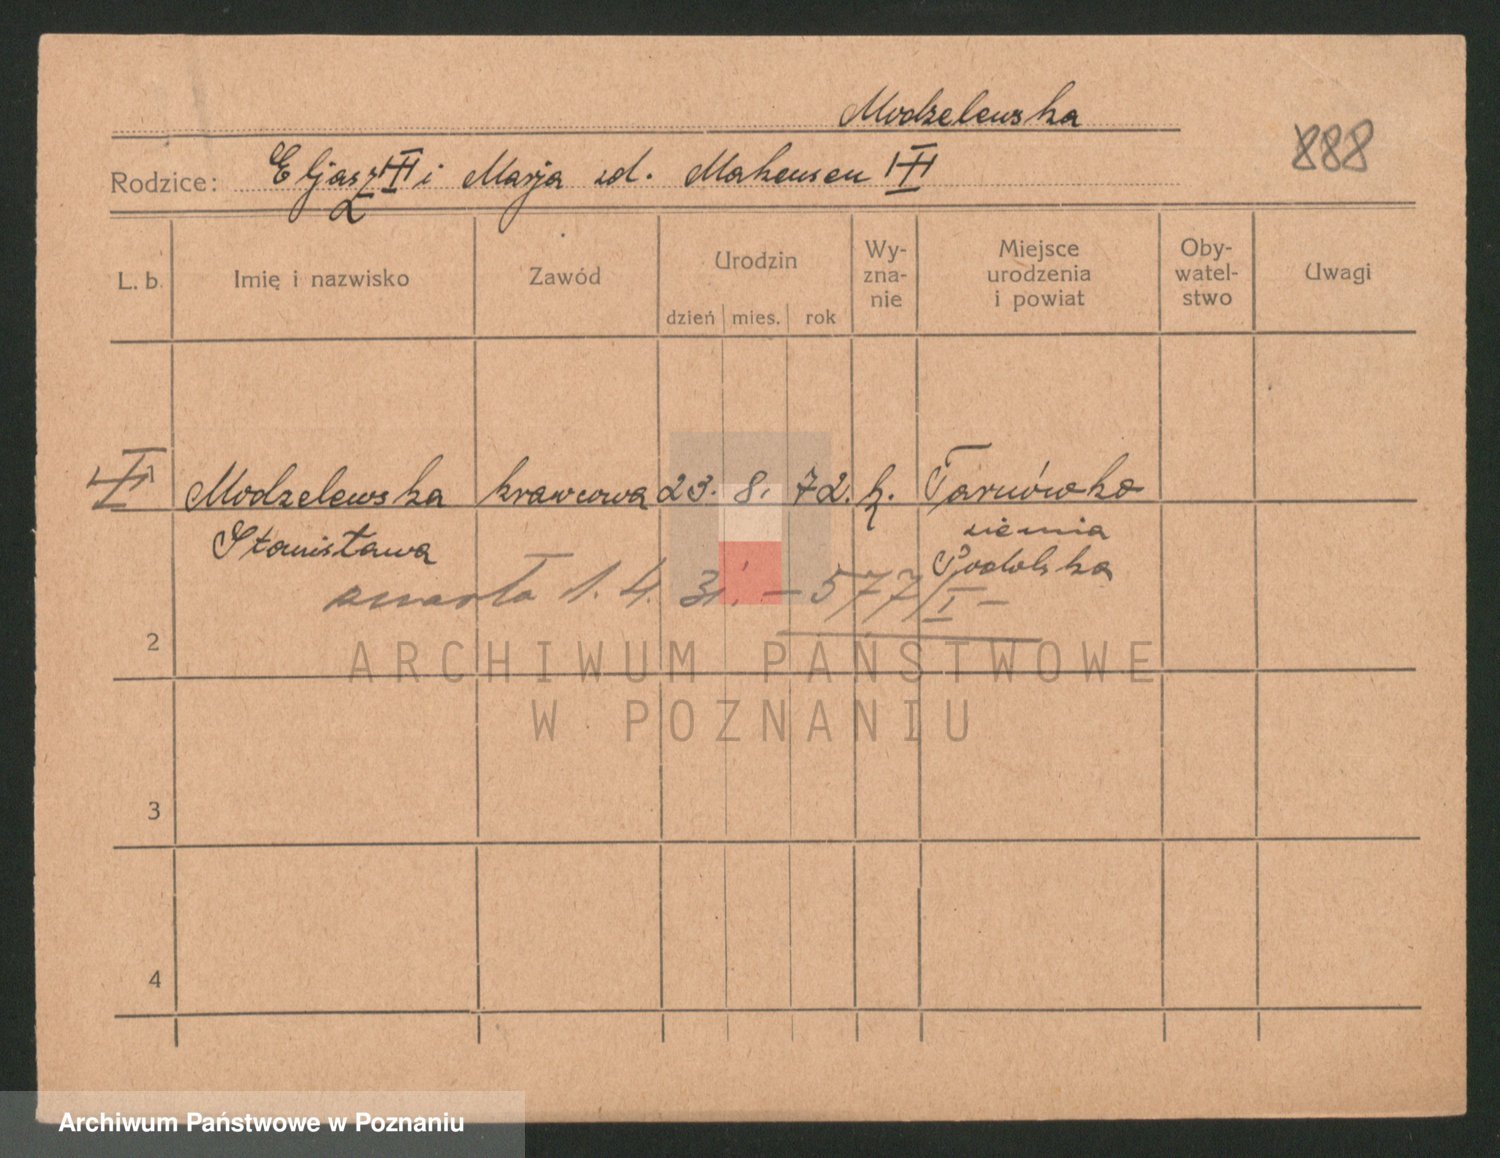 Modzelewska
888
Rodzice: Eljasz i Marja zd. Makensen
L. b. Imię i nazwisko Zawód Urodzin dzień mies. rok Wy-zna-nie Miejsce urodzenia i powiat Oby-watel-stwo Uwagi
Modzelewska krawcowa 23. 8. 72. k. Tarnówko
Stanisława ziemia
Podolska
zmarła 1. 4. 31. – 577/I –
2
ARCHIWUM PAŃSTWOWE
W POZNANIU
3
4
Archiwum Państwowe w Poznaniu